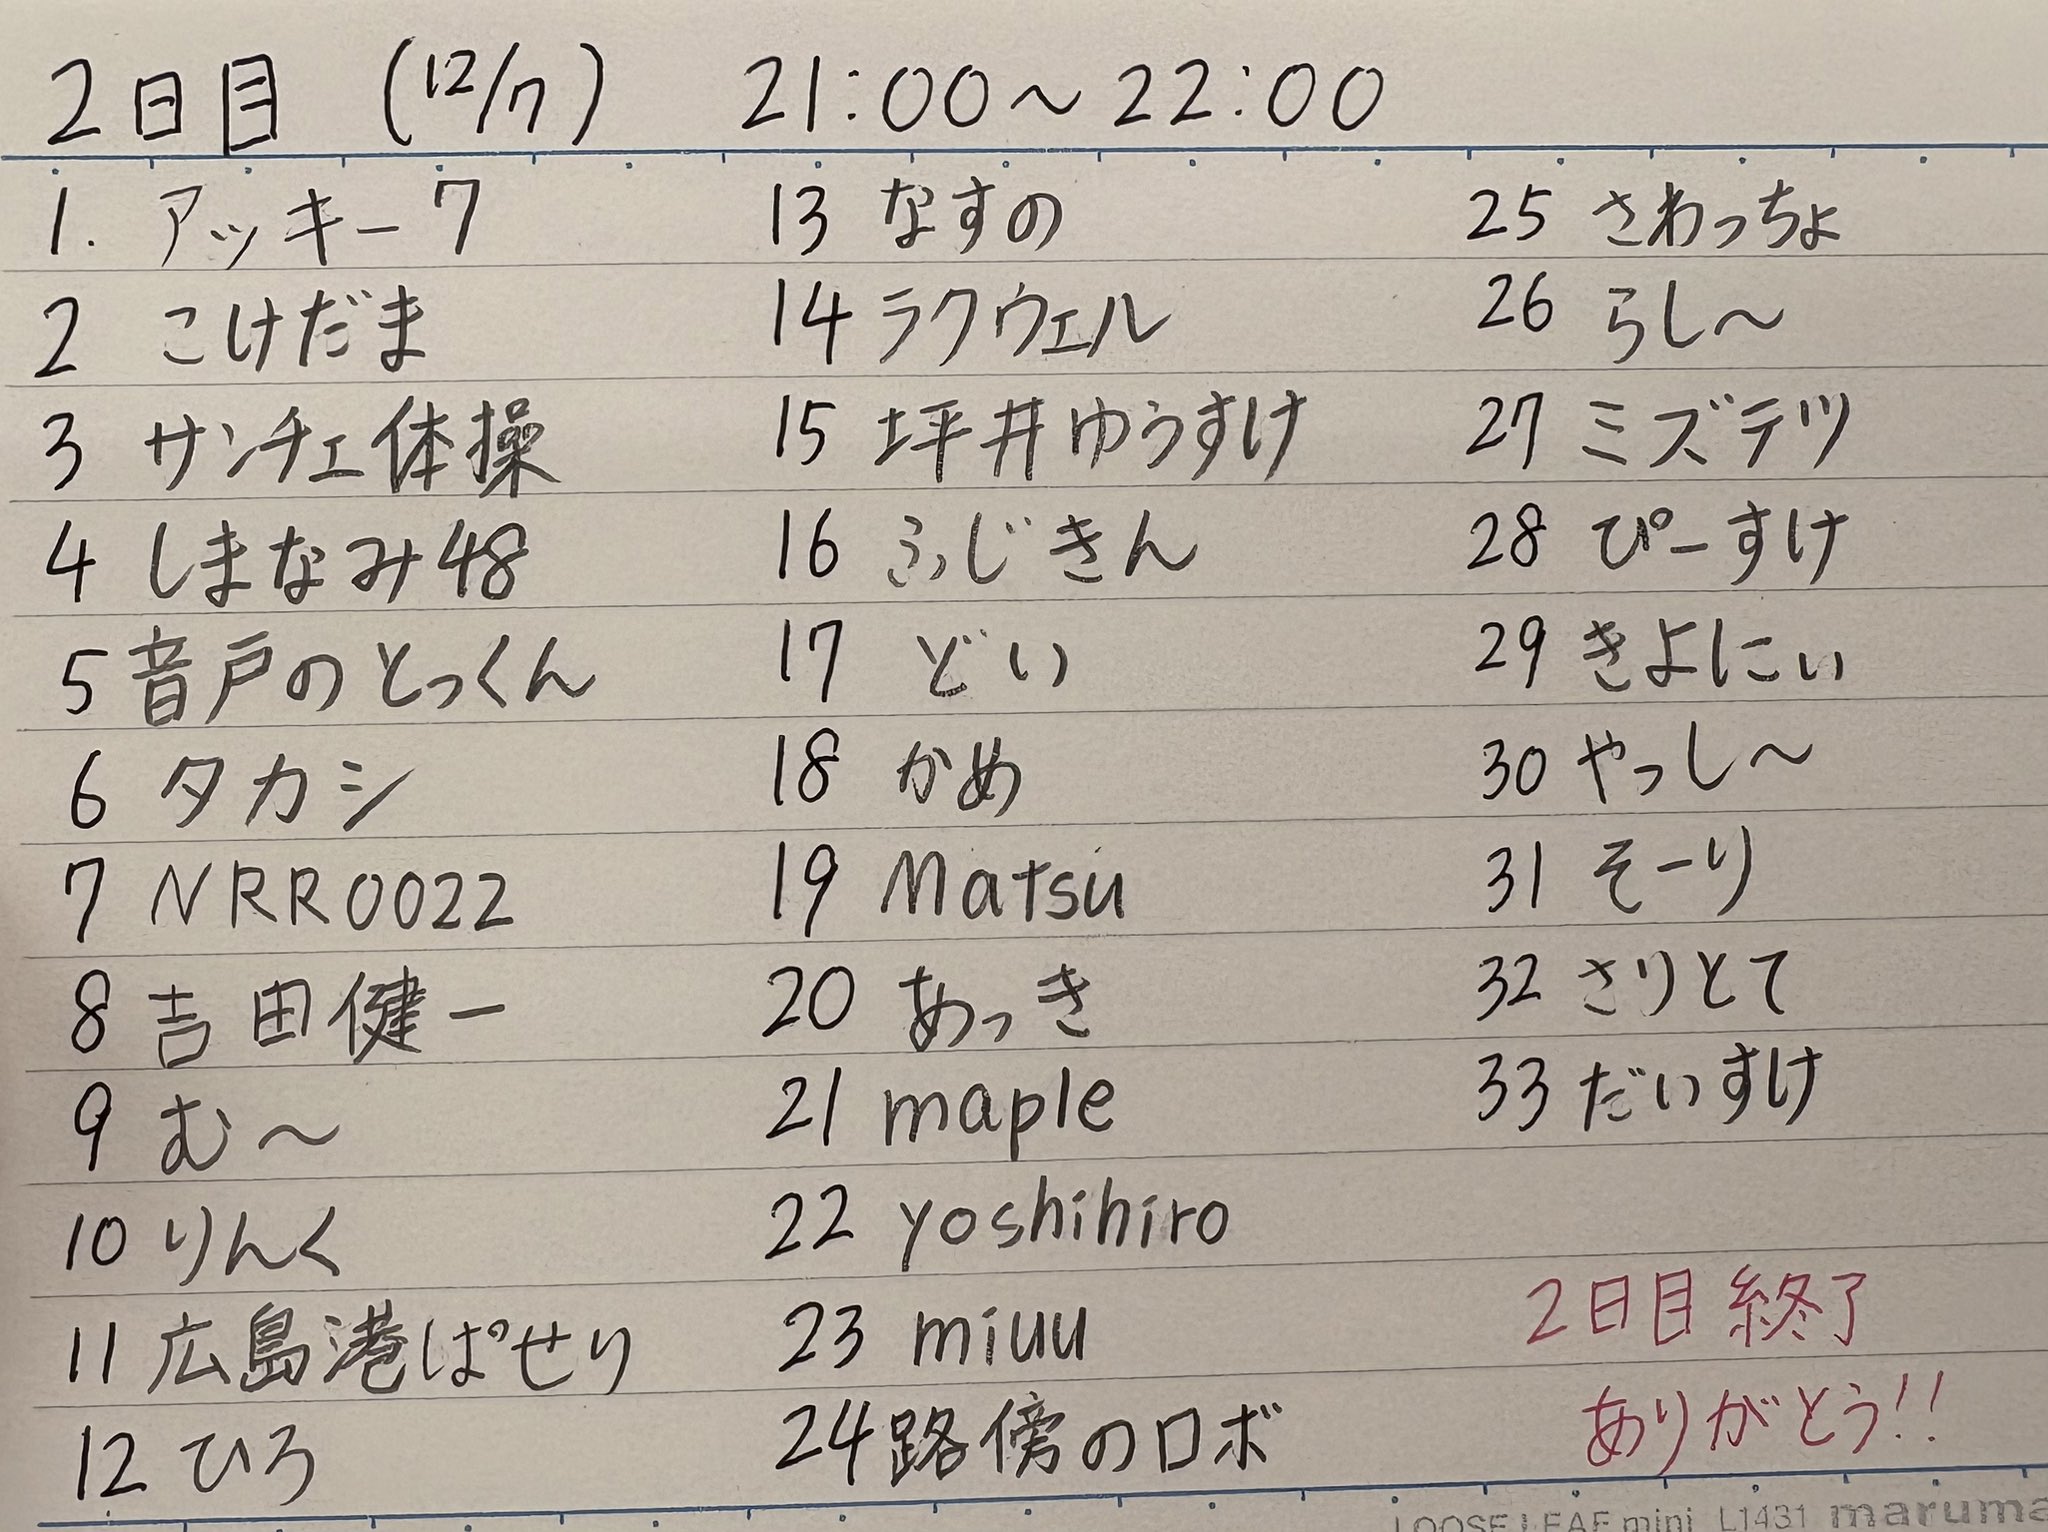 2日目 (12/7) 21:00～22:00
1. アッキー7
2 こけだま
3 サンチェ体操
4 しまなみ48
5 音戸のとっくん
6 タカシ
7 NRR0022
8 吉田健一
9 む～
10 りんく
11 広島港ぱせり
12 ひろ
13 なすの
14 ラクウェル
15 坪井ゆうすけ
16 ふじきん
17 どい
18 かめ
19 Matsu
20 あっき
21 maple
22 yoshihiro
23 miuu
24 路傍のロボ
25 さわっちょ
26 らし～
27 ミズテツ
28 ぴーすけ
29 きよにぃ
30 やっし～
31 そーり
32 さりとて
33 だいすけ
2日目終了
ありがとう!!
LOOSE LEAF mini L1431 maruma